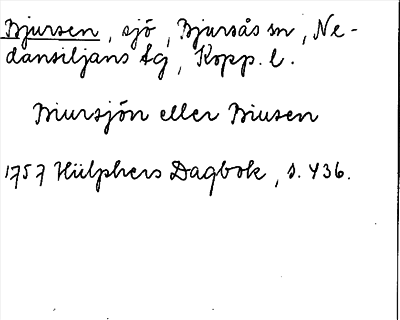 Bjursen, sjö, Bjursås sn, Ne-
dansiljans tg, Kopp. l.
Biursjön eller Biusen
1757 Hülphers Dagbok, s. 436.